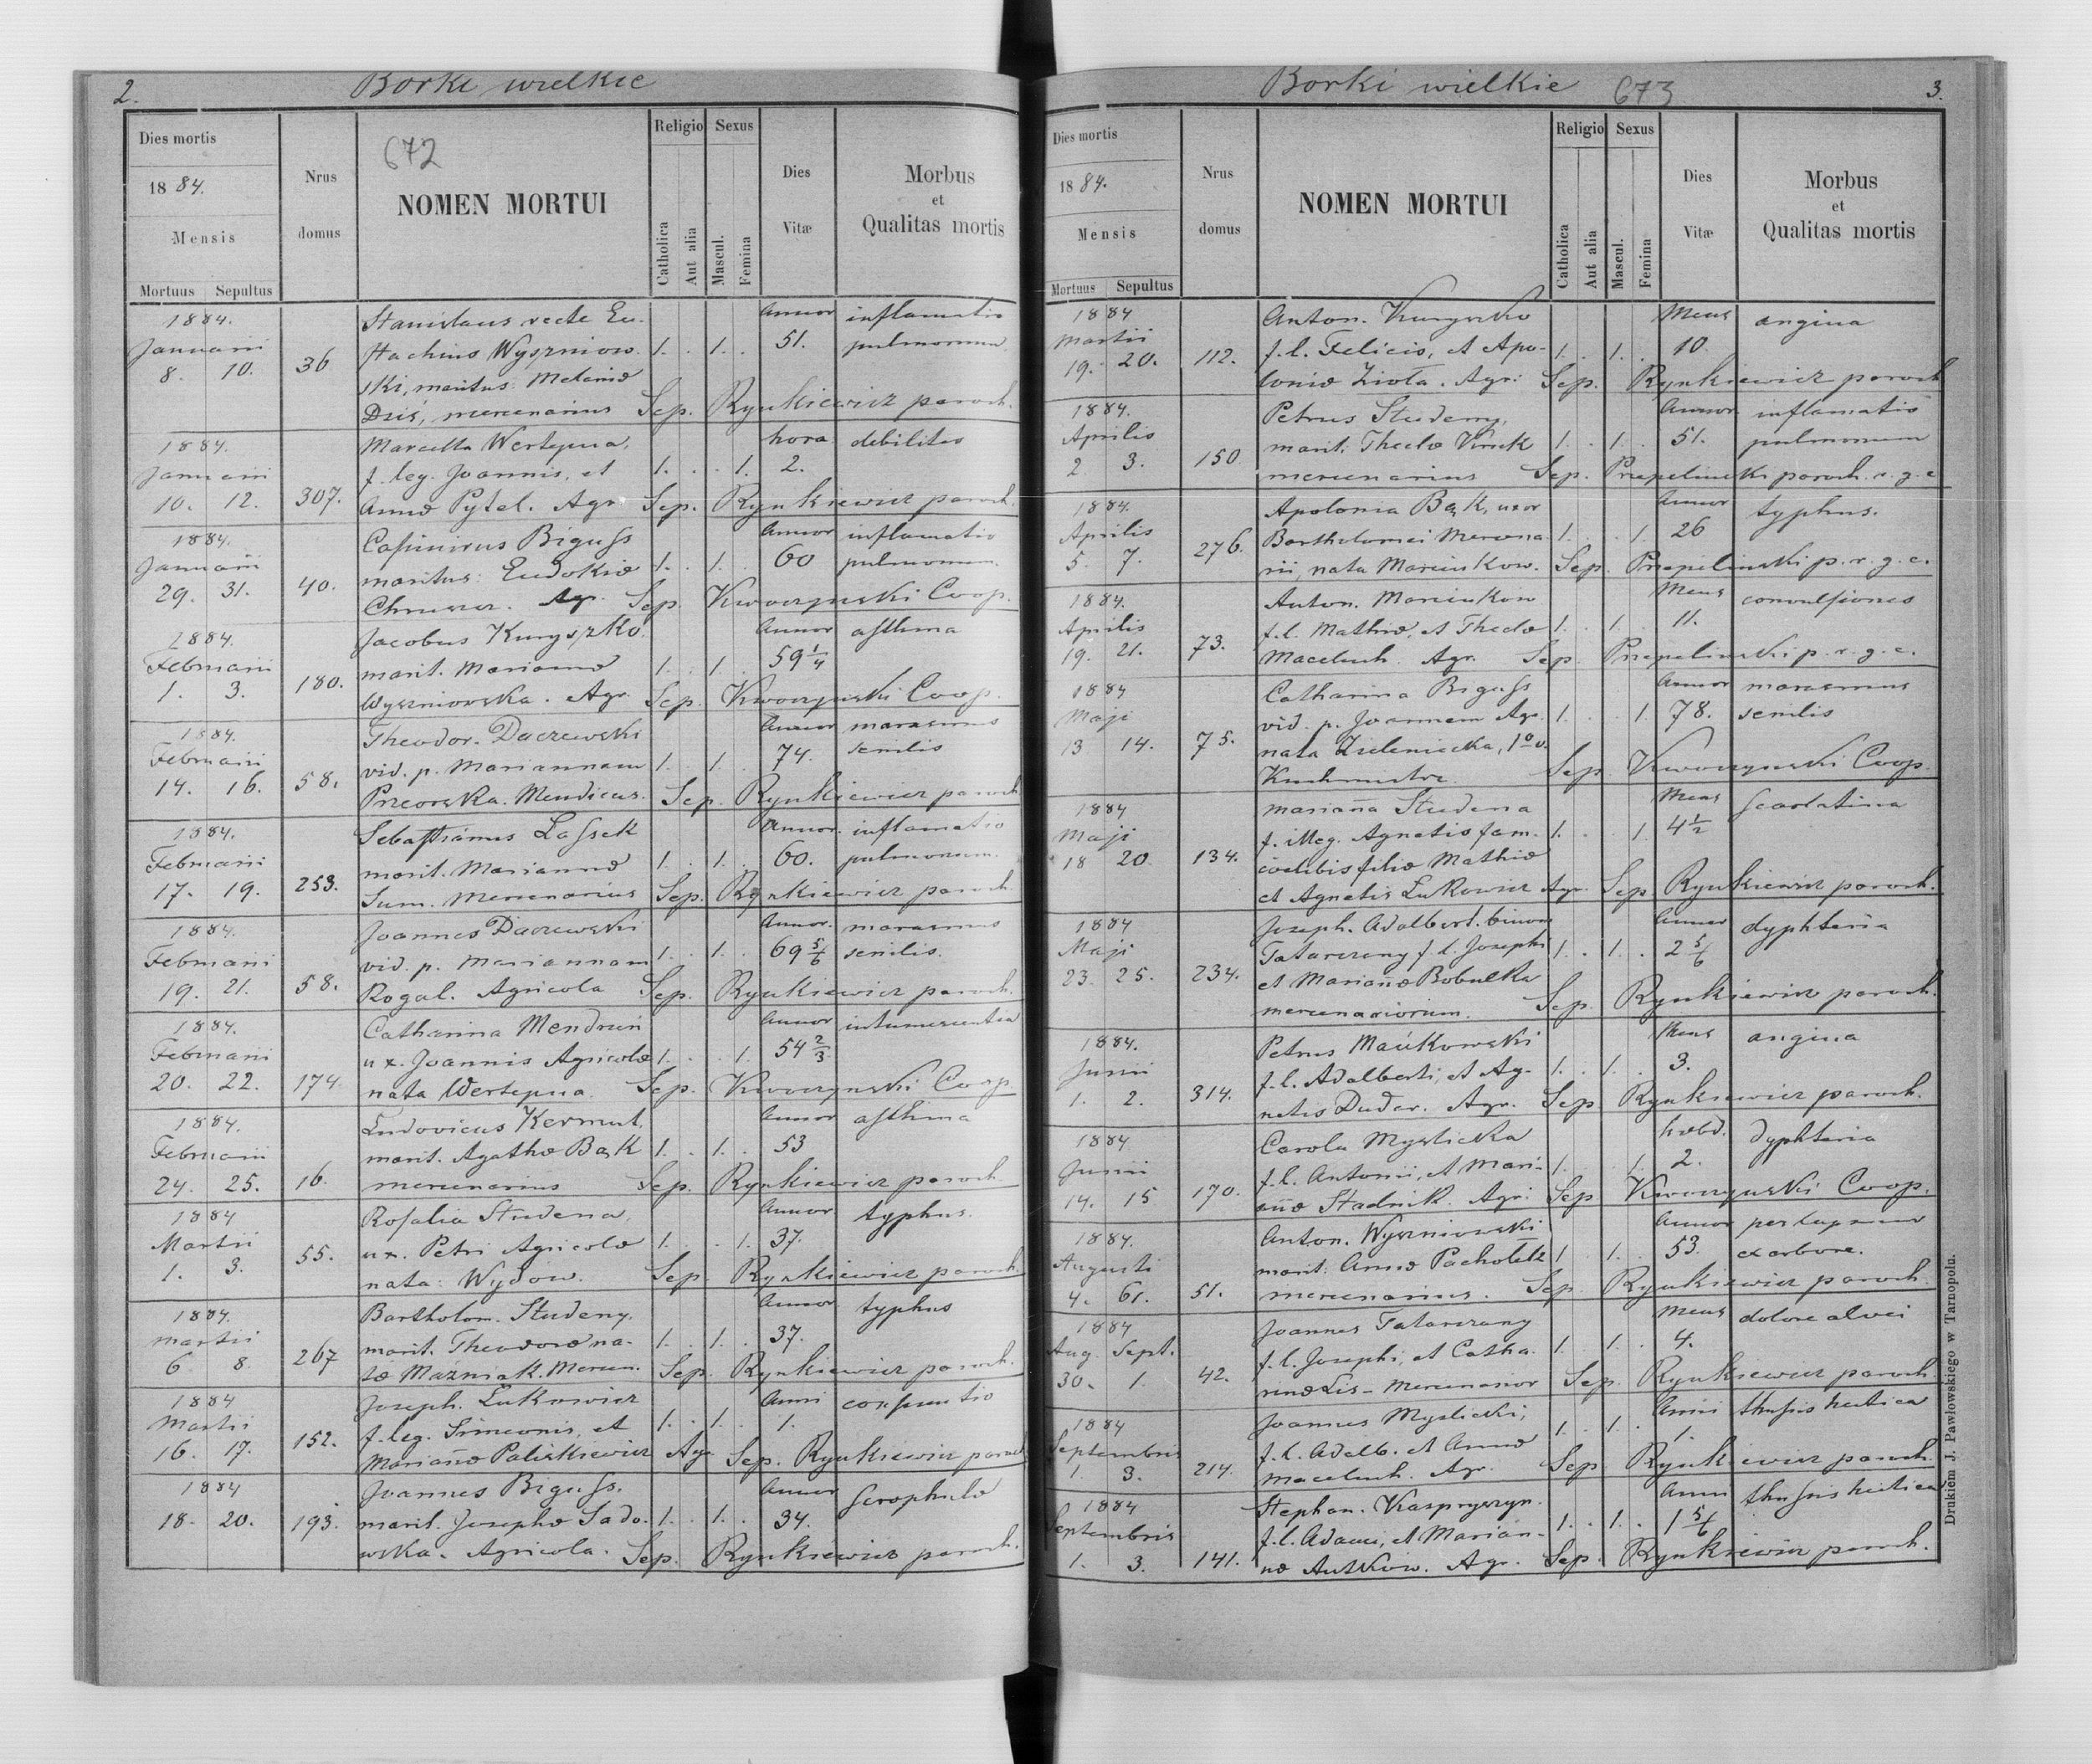 2. Borki wielkie
672
Dies mortis
1884.
Mensis
Mortuus Sepultus
Nrus domus
NOMEN MORTUI
Religio
Catholica
Aut alia
Sexus
Mascul.
Femina
Dies Vitæ
Morbus
et
Qualitas mortis
1884. Stanislaus recte Eu- Annor inflamatio
Januarii 36 stachius Wyszniow- 1. 1. 51. pulmonum
8. 10. ski, maritus Melaniæ
Dziś, mercenarius Sep. Rynkiewicz paroch.
1884. Marcella Wertepna, hora debilitas
Januarii f. leg. Joannis, et 1. 1. 2.
10. 12. 307. Annæ Pytel. Agr. Sep. Rynkiewicz paroch.
1884. Casimirus Biguss Annor inflamatio
Januarii maritus: Eudokiæ 1. 1. 60 pulmonum
29. 31. 40. Agr. Sep. Kwoczynski Coop.
1884. Jacobus Kuryszko Annor asthma
Februarii marit. Mariannæ 1. 1 59 1/4
1. 3. 180. Wyszniovska. Agr. Sep. Kwoczynski Coop.
1884. Theodor. Daczewski Annor marasmus
Februarii vid. p. Mariannam 1. 1. 74. senilis
14. 16. 58. Mendicus. Sep. Rynkiewicz paroch
1884. Sebastianus Lassek Annor. inflamatio
Februarii marit. Mariannæ 1. 1. 60. pulmonum.
17. 19. 253. Sum. Mercenarius Sep. Rynkiewicz paroch.
1884. Joannes Daczewski Annor. marasmus
Februarii vid. p. Mariannam 1. 1. 69 5/6 senilis.
19. 21. 58. Rogal. Agricola Sep. Rynkiewicz paroch.
1884. Catharina Mendruń Annor intumescentia
Februarii ux. Joannis Agricolæ 1. 1. 54 2/3
20. 22. 174 nata Wertepna Sep. Kwoczynski Coop
1884. Ludovicus Kermut, Annor asthma
Februarii marit. Agathæ Bąk 1. 1. 53
24. 25. 16. mercenarius Sep. Rynkiewicz paroch
1884 Rosalia Studena, Annor typhus.
Martii ux. Petri Agricolæ 1. 1. 37.
1. 3. 55. nata: Wydow. Sep. Rynkiewicz paroch.
1884. Bartholom. Studeny, Annor typhus
Martii marit. Theodoræ na- 1. 1. 37.
6 8. 267 tæ Maźniak. Mercen. Sep. Rynkiewicz paroch.
1884 Joseph. Lukowicz Anni
Martii f. leg. Simeonis, et 1. 1. 1.
16. 17. 152. Mariañæ Paliszkiewicz Agr Sep. Rynkiewicz paroch
1884 Joannes Biguss, Annor scrophulæ
18. 20. 193. marit. Josephæ Sado- 1. 1. 34.
wska. Agricola. Sep. Rynkiewicz paroch.
Borki wielkie 673 3.
Dies mortis
1884.
Mensis
Mortuus Sepultus
Nrus domus
NOMEN MORTUI
Religio
Catholica
Aut alia
Sexus
Mascul.
Femina
Dies Vitæ
Morbus
et
Qualitas mortis
1884 Anton. Kuryszko Mens angina
Martii f. l. Felicis, et Apo- 1. 1. 10.
19. 20. 112. loniæ Ziota. Agr: Sep. Rynkiewicz paroch
1884. Petrus Studeny, Annor inflamatio
Aprilis marit. Theclæ 1. 1. 51. pulmonum
2 3. 150 mercenarius Sep. Przepelinski paroch. r. g. c
1884. Apolonia Bąk, uxor Annor typhus.
Aprilis Bartholomei Mercena- 1. 1. 26
5. 7. 276. rii, nata Marcinkow. Sep. Przepelinski p. r. g. c.
1884 Anton. Marcinkow Mens convulsiones
Aprilis f. l. Mathiæ, et Theclæ 1. 1. 11.
19. 21. 73. Maceluch. Agr. Sep Przepelinski p. r. g. c.
1884 Catharina Biguss Annor marasmus
Maji vid. p. Joannem Agr. 1. 1 78. senilis
13 14. 75. nata Zieleniecka, 1o v.
Kuchmistrz Sep Kwoczynski Coop.
1884 Mariaña Studena Mens scarlatina
Maji f. illeg. Agnetis fam. 1. 1. 4 1/2
18 20 134. coelibis filiæ Mathiæ
et Agnetis Lukowicz Agr. Sep Rynkiewicz paroch.
1884 Joseph. Adalbert. binom Annor dyphteria
Maji Tatarczany f. l. Josephi 1. 1. 2 5/6
23. 25. 234. et Mariañæ Bobulka
mercenariorum. Sep. Rynkiewicz paroch.
1884. Petrus Mańkowski Mens angina
Junii f. l. Adalberti, et Ag- 1. 1. 3.
1. 2. 314. netis Dudar. Agr. Sep Rynkiewicz paroch.
1884 Carola Myslicka hebd. dyphteria
Junii f. l. Antonii, et Mari- 1. 1. 2.
14. 15 170. añæ Stadnik. Agr: Sep Kwoczynski Coop.
1884. Anton. Wyszniowski Annor per lapsum
Augusti marit: Annæ Pacholek 1. 1. 53. ex arbore.
4. 6. 51. mercenarius. Sep. Rynkiewicz paroch.
1884 Joannes Tatarczany Mens dolore alvei
Aug. Sept. f. l. Josephi, et Catha- 1. 1. 4.
30. 1. 42. rinæ Lis - Mercenarior Sep. Rynkiewicz paroch.
1884 Joannes Myslicki, Anni hectica
Septembris f. l. Adalb. et Annæ 1. 1. 1.
1 3. 214. Maceluch. Agr. Sep Rynkiewicz paroch.
1884 Stephan. Kaspryszyn Anni hectica
Septembris f. l. Adami, et Marian- 1. 1. 1 5/6
1. 3. 141. næ Autkow. Agr. Sep. Rynkiewicz paroch.
Drukiem J. Pawłowskiego w Tarnopolu.